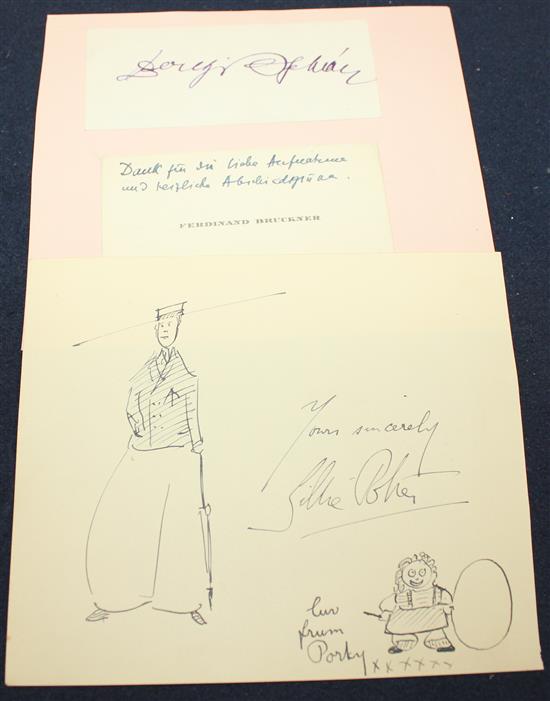 Dank für die liebe Aufnahme
und herzliche Abschiedsgrüsse.
FERDINAND BRUCKNER
Yours sincerely
Gillie Potter
luv
frum
Porky
xxxxxx